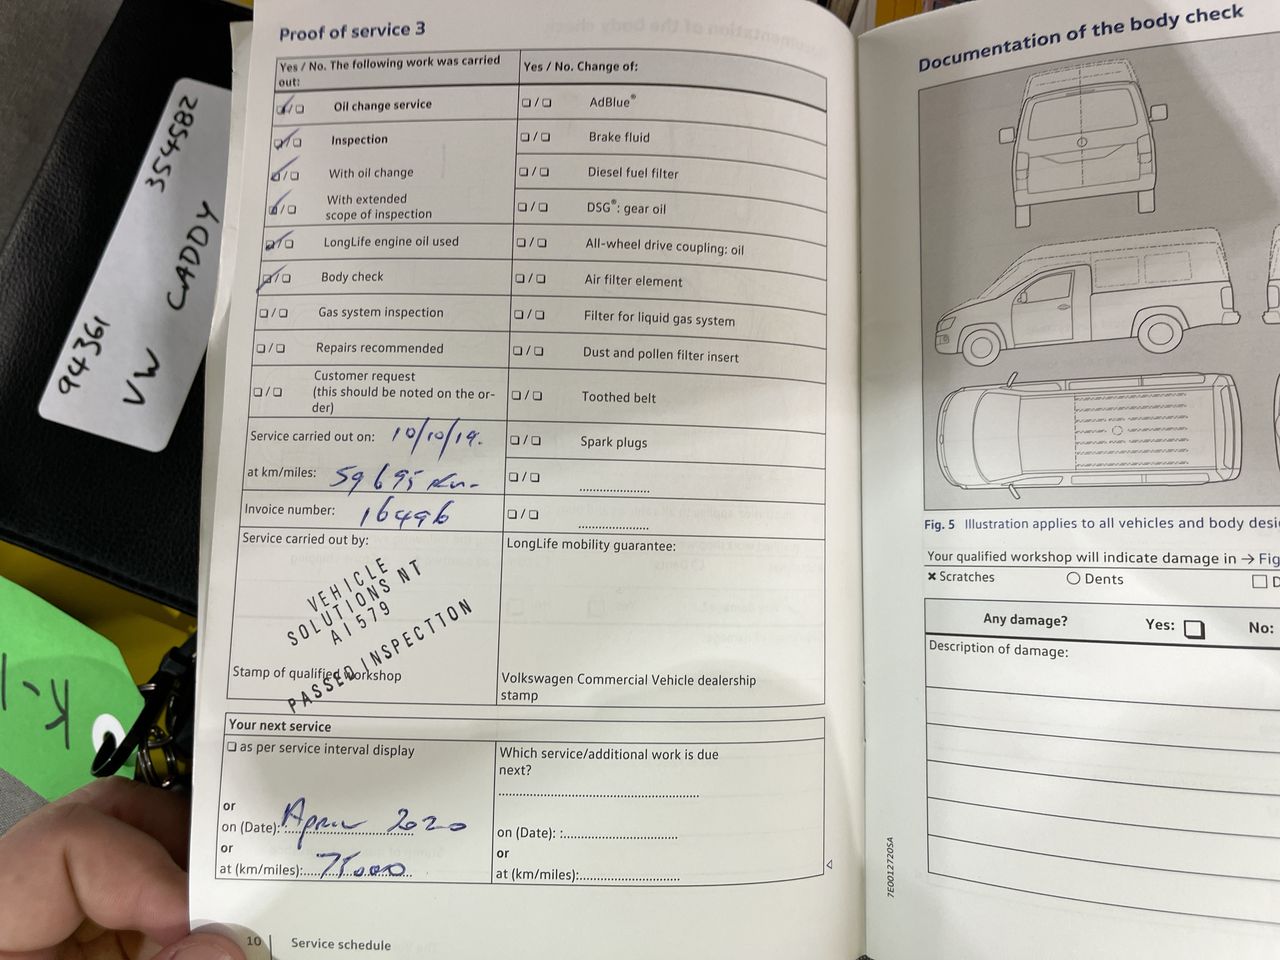 354582
94361
VW CADDY
K-1
Proof of service 3
Yes / No. The following work was carried out:
Yes / No. Change of:
❏/❏ Oil change service
❏/❏ AdBlue®
❏/❏ Inspection
❏/❏ Brake fluid
❏/❏ With oil change
❏/❏ Diesel fuel filter
❏/❏ With extended
scope of inspection
❏/❏ DSG®: gear oil
❏/❏ LongLife engine oil used
❏/❏ All-wheel drive coupling: oil
❏/❏ Body check
❏/❏ Air filter element
❏/❏ Gas system inspection
❏/❏ Filter for liquid gas system
❏/❏ Repairs recommended
❏/❏ Dust and pollen filter insert
❏/❏ Customer request
(this should be noted on the or-
der)
❏/❏ Toothed belt
Service carried out on: 10/10/19.
❏/❏ Spark plugs
at km/miles: 59695 km
❏/❏
Invoice number: 16496
❏/❏
Service carried out by:
LongLife mobility guarantee:
VEHICLE
SOLUTIONS NT
AI 579
PASSED INSPECTION
Stamp of qualified workshop
Volkswagen Commercial Vehicle dealership
stamp
Your next service
❏ as per service interval display
Which service/additional work is due
next?
or
on (Date): April 2020
on (Date): :
or
or
at (km/miles): 75000
at (km/miles):
10 Service schedule
Documentation of the body check
Fig. 5 Illustration applies to all vehicles and body desi
Your qualified workshop will indicate damage in → Fig
× Scratches
○ Dents
□ D
Any damage? Yes: ❏ No:
Description of damage:
7E0012720SA